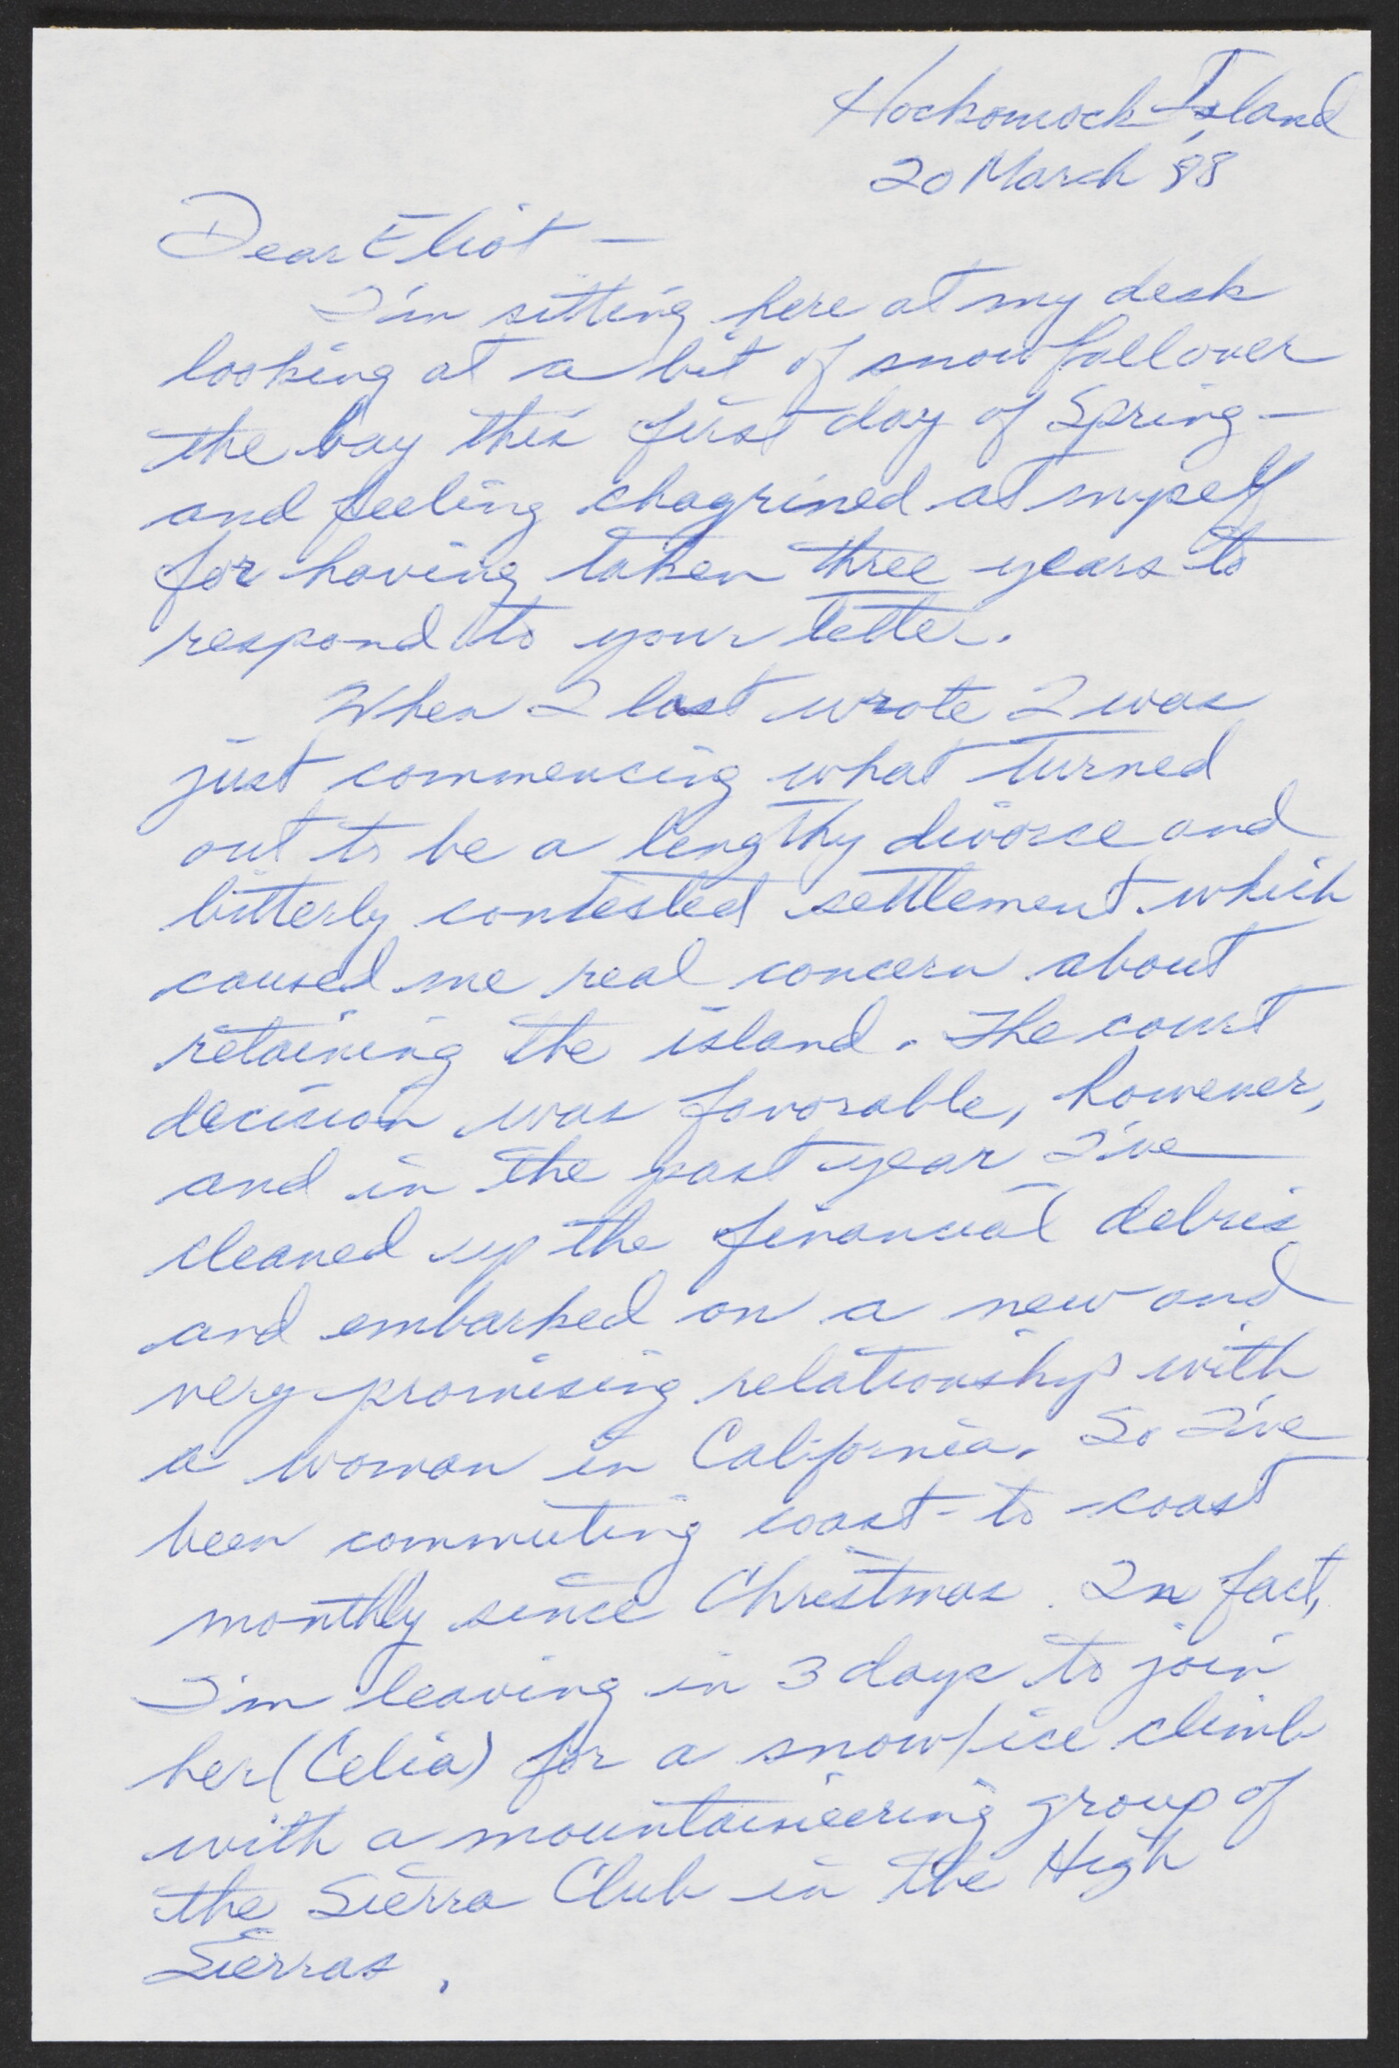 Hockomock Island
20 March '88
Dear Eliot –
I'm sitting here at my desk
looking at a bit of snow fall over
the bay this first day of Spring –
and feeling chagrined at myself
for having taken three years to
respond to your letter.
When I last wrote I was
just commencing what turned
out to be a lengthy divorce and
bitterly contested settlement which
caused me real concern about
retaining the island. The court
decision was favorable, however,
and in the past year I've
cleaned up the financial debris
and embarked on a new and
very promising relationship with
a woman in California. So I've
been commuting coast-to-coast
monthly since Christmas. In fact,
I'm leaving in 3 days to join
her (Celia) for a snow/ice climb
with a mountaineering group of
the Sierra Club in the High
Sierras.